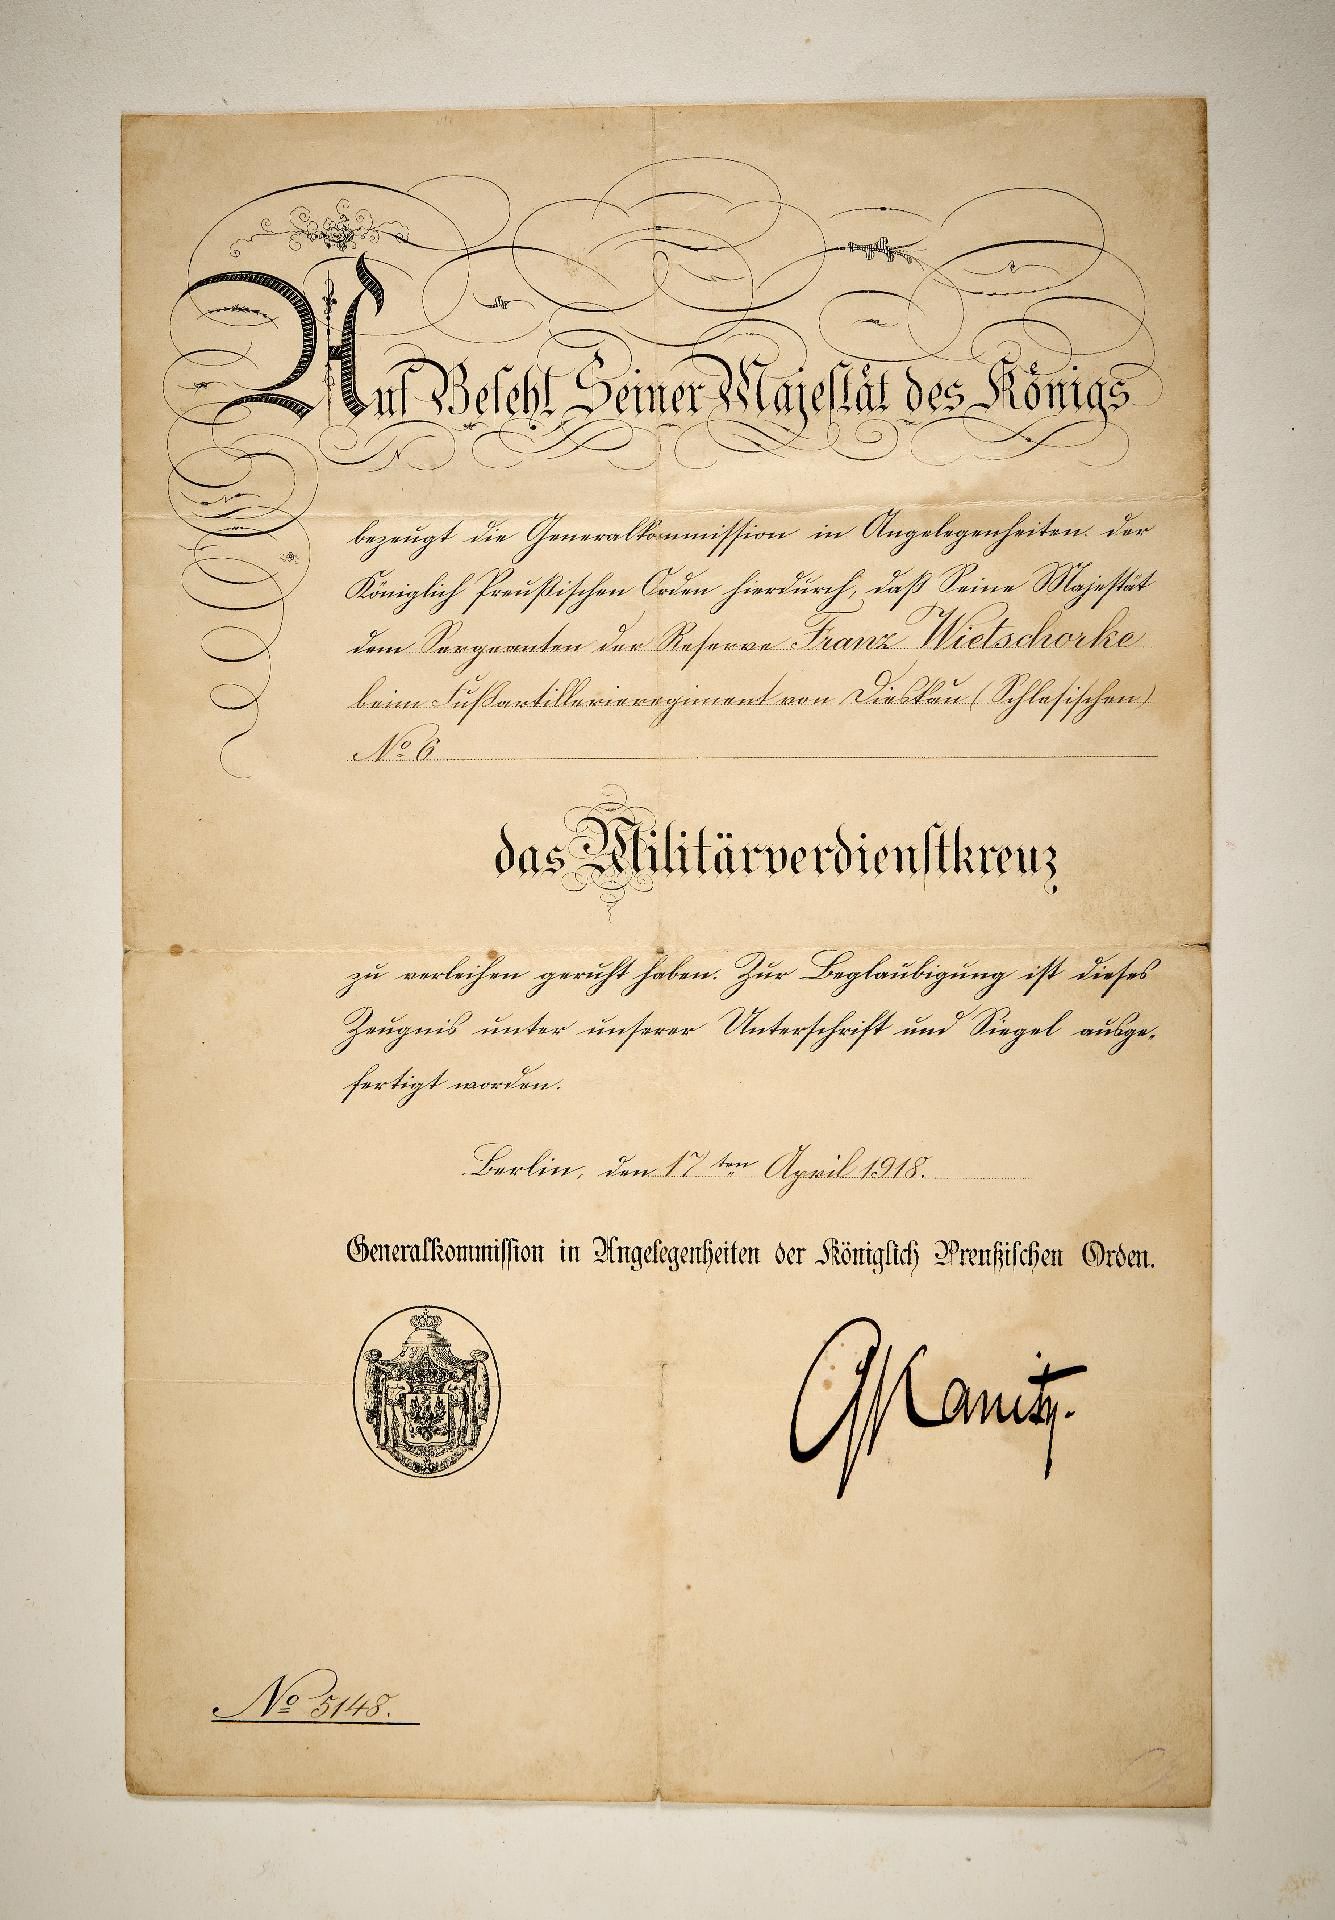 Auf Befehl Seiner Majestät des Königs
bezeugt die Generalkommission in Angelegenheiten der
Königlich Preußischen Orden hierdurch, daß Seine Majestät
dem Sergeanten der Reserve Franz Wietschorke
beim Fußartillerieregiment von Dieskau (Schlesischen)
No 6
das Militärverdienstkreuz
zu verleihen geruht haben. Zur Beglaubigung ist dieses
Zeugnis unter unserer Unterschrift und Siegel ausge-
fertigt worden.
Berlin, den 17ten April 1918.
Generalkommission in Angelegenheiten der Königlich Preußischen Orden.
GKanitz.
No 5148.